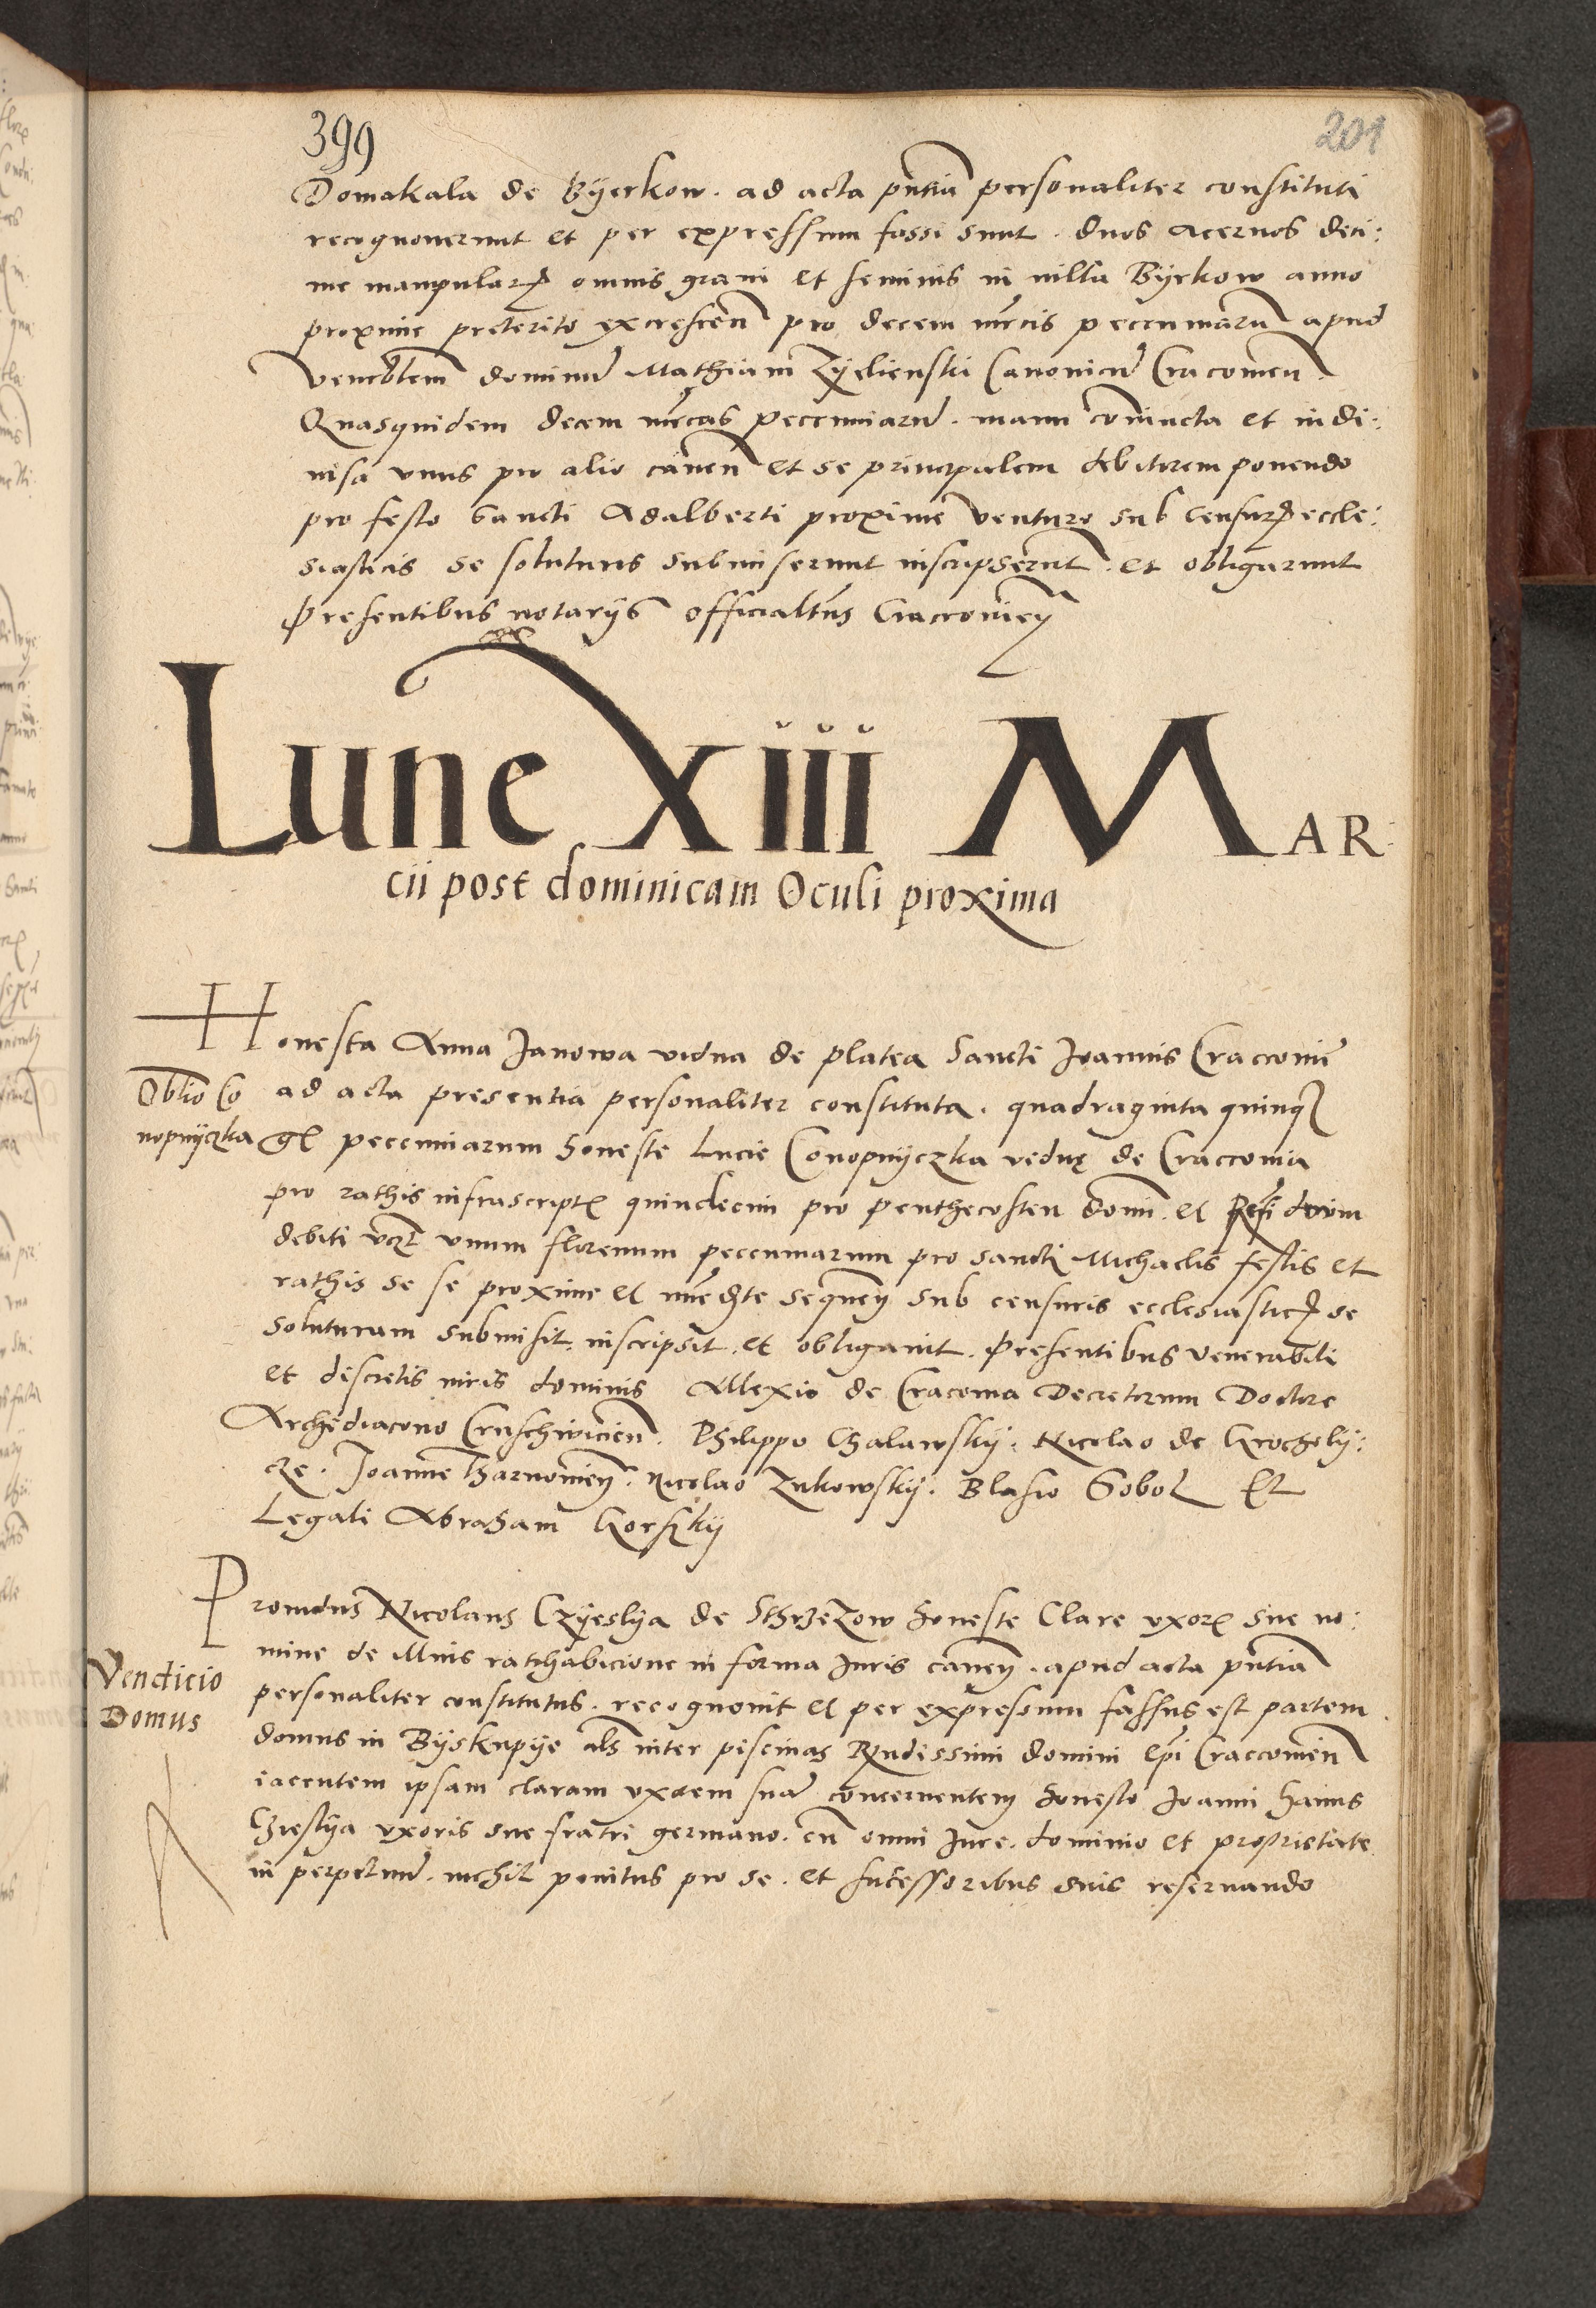 399
201
Domakala de Byerkow. ad acta pntia personaliter constituti
recognoverunt et per expressum fassi sunt. duos acervos deci:
me manpular omnis grani et seminis in villa Byrkow anno
proxime preterito excrescen pro decem mrcis pecunniaru apud
venerblem dominu Mathiam Zyelienski Canonicu Cracovien.
Quasquidem decem mrcas pecunniaru. manu coniuncta et indi:
visa unus pro alio caven et se principalem debitorem ponendo
pro festo Sancti Adalberti proxime venturo sub censur eccle:
siasticis se soluturos submiserunt inscripserut. et obligarunt
Presentibus notarijs officialtus Cracovien
Lune xiii MAR
cii post dominicam Oculi proxima
Honesta Anna Janowa vidua de platea Sancti Joannis Cracovie
Oblio Co
ad acta presentia personaliter constituta. quadraginta quinq
nopnyczka
pecunniarum honeste Lucie Conopnyczka vedue de Craccovia
pro rathis infrascript quindecim pro penthecosten domi. et
debiti vczt unum florenum pecunniarum pro sancti Michaelis festis et
rathis se se proxime et immedte sequen sub censuris ecclesiastic se
soluturam submisit. inscripsit. et obligavit. Presentibus venerabili
et discretis viris dominis Allexio de Cracovia Decretorum Doctore
Archediacono Cruschwicien. Philippo Chalawsky. Nicolao de Krocholy:
cze. Joanne Tharnowien. Nicolao Zukowsky. Blasio Gobol Et
Legali Abraham Korszky
Providus Nicolaus Czyeslya de Sthrzezow honeste Clare uxor sue no:
mine de cuius rathihabicione in forma Iuris caven. apud acta pntia
Vendicio
personaliter constitutus. recognovit et per expressum fassus est partem
Domus
domus in Byskupye als inter piscinas Rndissimi domini epi Craccovien
iacentem ipsam claram uxorem sua concernentem honesto Joanni hanus
Cziestya uxoris sue fratri germano. cu omni Iure. dominio et proprietate
in perpetuu. nichil penitus pro se. et successoribus suis reservando